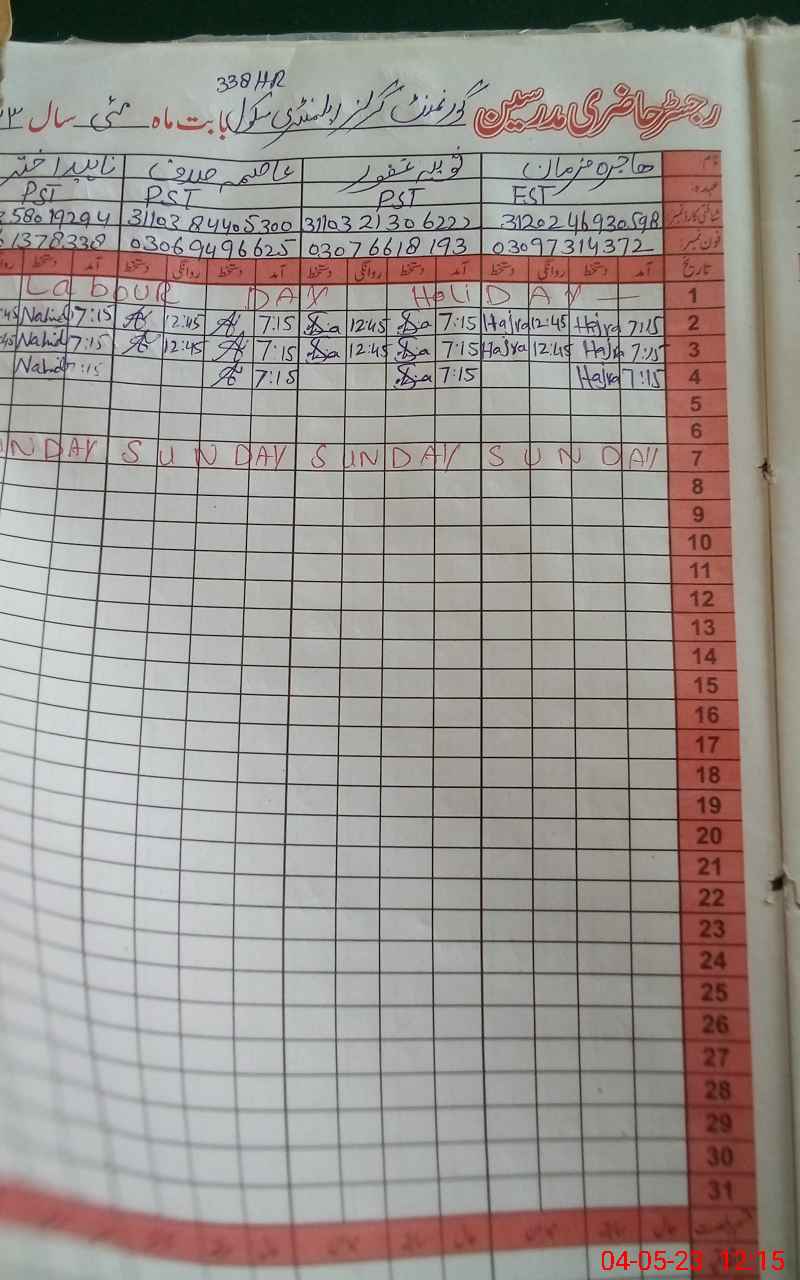 338HR
رجسٹر حاضری مدرسین گورنمنٹ گرلز ایلمنٹری سکول بابت ماہ مئی سال
نام ھاجرہ مزمان غفور عاصمہ ناہید اختر
عہدہ: EST PST PST PST
شناختی کارڈ نمبر 3120246930598 3110321306222 3110384405300 58019294
فون نمبر: 03097314372 03076618193 03069496625 1378338
تاریخ آمد دستخط روانگی دستخط آمد دستخط روانگی دستخط آمد دستخط روانگی دستخط آمد دستخط
Labour DAY HoliDAY — 1
:45 Nahid 7:15 12:45 7:15 12:45 7:15 Hajra 12:45 Hajra 7:15 2
:45 Nahid 7:15 12:45 7:15 12:45 7:15 Hajra 12:45 Hajra 7:15 3
Nahid 7:15 7:15 7:15 Hajra 7:15 4
5
6
NDAY SUNDAY SUNDAY SUNDAY 7
8
9
10
11
12
13
14
15
16
17
18
19
20
21
22
23
24
25
26
27
28
29
30
31
04-05-23 12:15